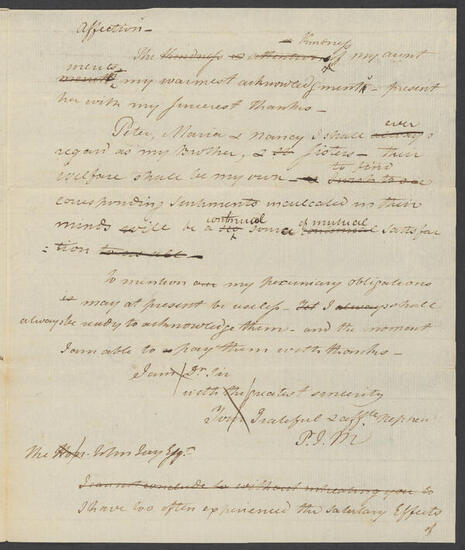 Affection –
– Kindness
The kindness & attentions of my aunt
merits my warmest acknowledgments – present
her with my sincerest thanks –
Peter, Maria & Nancy I shall ever always
regard as my Brother, & Sisters – their
welfare shall be my own – & to find
corresponding Sentiments inculcated in their
minds will be a continual source of mutual Satisfac
:tion to us all –
To mention my pecuniary obligations
may at present be useless – Yet I always shall
always be ready to acknowledge them – and the moment
I am able to pay them with thanks –
I am Dr. Sir
with the greatest sincerity
Your Grateful & affte. Nephew
P. J. M
The Hon. John Jay Esqr.
I can not conclude to without intreating you to
I have too often experienced the salutary Effects
of